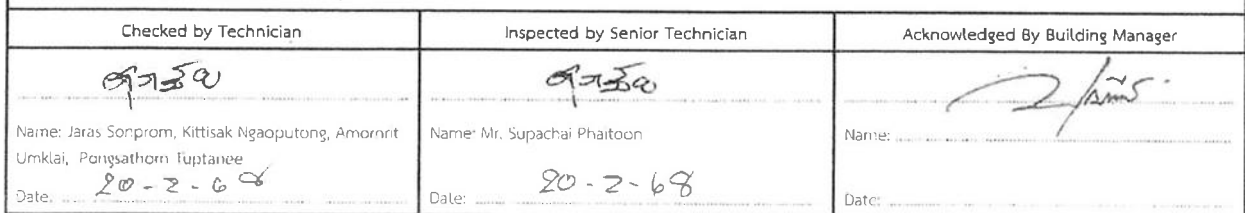 Checked by Technician
Inspected by Senior Technician
Acknowledged By Building Manager
ศุภชัย
ศุภชัย
Name: Jaras Sonprom, Kittisak Ngaoputong, Amornrit
Umklai, Pongsathorn Tuptanee
Name: Mr. Supachai Phaitoon
Name:
Date: 20-2-68
Date: 20-2-68
Date: